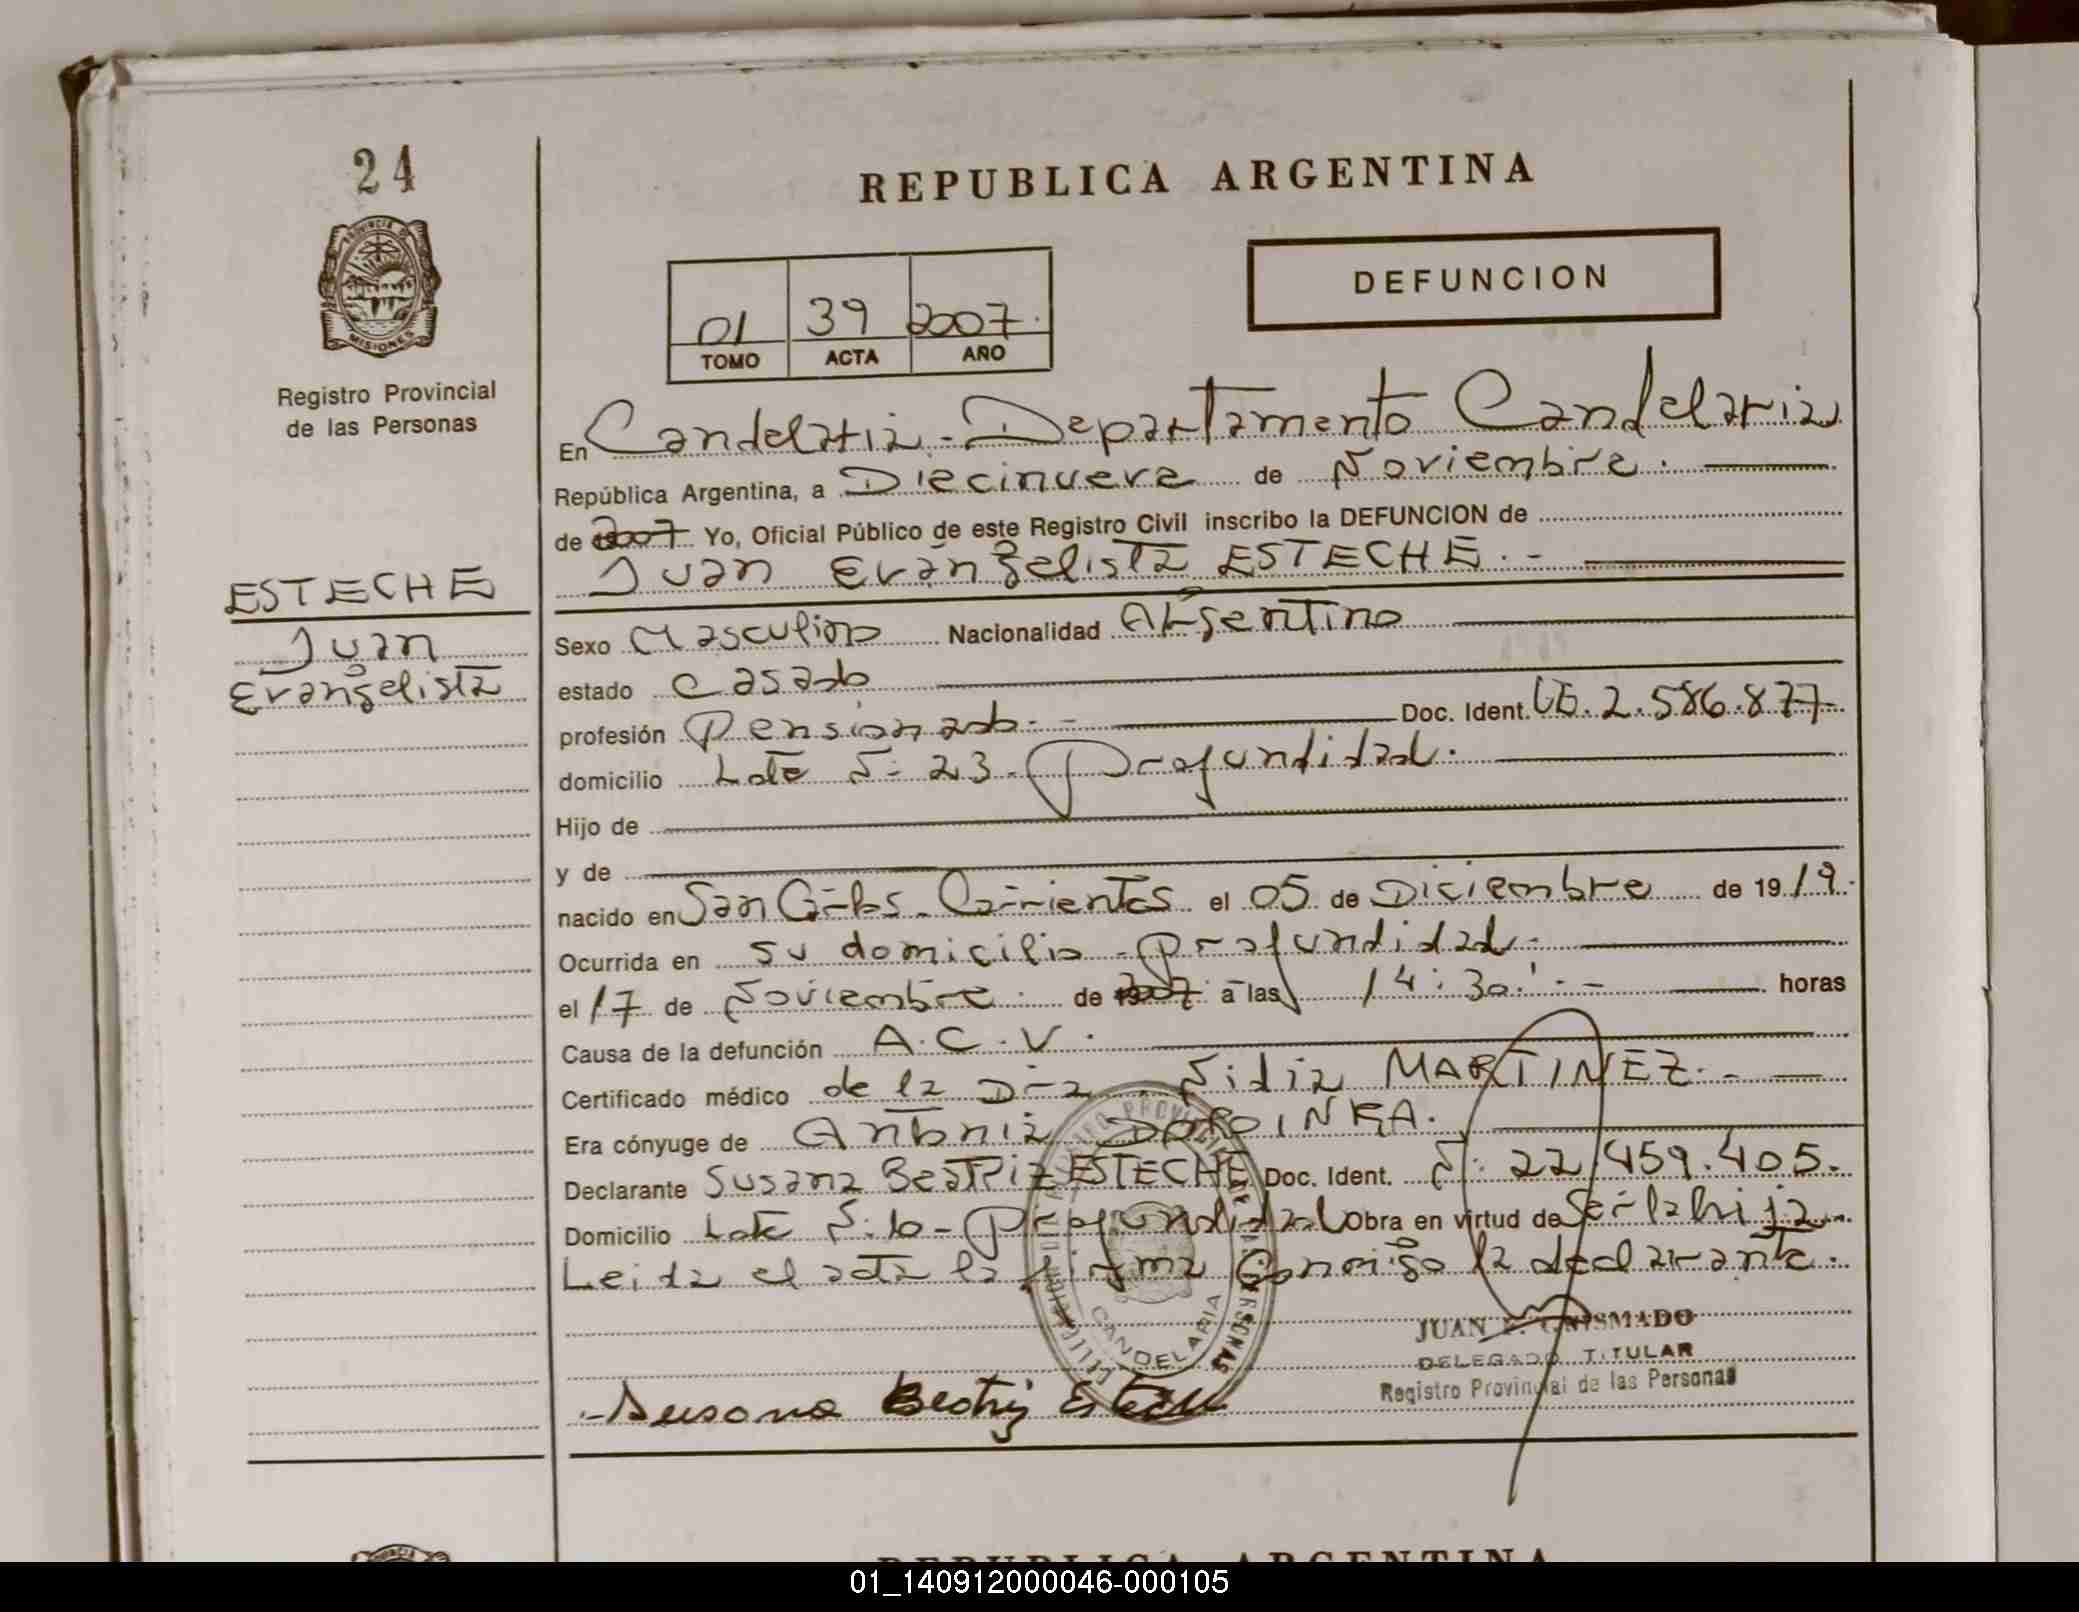 24
REPUBLICA ARGENTINA
PROVINCIA DE
MISIONES
Registro Provincial
de las Personas
DEFUNCION
01 39 2007.
TOMO ACTA AÑO
En Candelaria - Departamento Candelaria
República Argentina, a Diecinueve de Noviembre.
de 2007 Yo, Oficial Público de este Registro Civil inscribo la DEFUNCION de
Juan Evangelista ESTECHE. -
ESTECHE
Juan
Evangelista
Sexo Masculino Nacionalidad Argentino
estado casado
profesión Pensionado. - Doc. Ident. LE. 2.586.877-
domicilio Lote N: 23 - Profundidad.
Hijo de
y de
nacido en San Carlos - Corrientes el 05 de Diciembre de 1919.
Ocurrida en su domicilio - Profundidad.
el 17 de Noviembre de 2007 a las 14:30'. - horas
Causa de la defunción A.C.V.
Certificado médico de la Dra Nidia MARTINEZ. -
Era cónyuge de Antonia
Declarante Susana Beatriz ESTECHE Doc. Ident. N: 22.459.405.
Domicilio Lote N: 10 - Profundidad Obra en virtud de Ser la hija
Leida el acta la firma Conmigo la declarante.
CANDELARIA
JUAN GRISMADO
DELEGADO TITULAR
Registro Provincial de las Personas
Susana Beatriz Esteche
REPUBLICA ARGENTINA
01_140912000046-000105